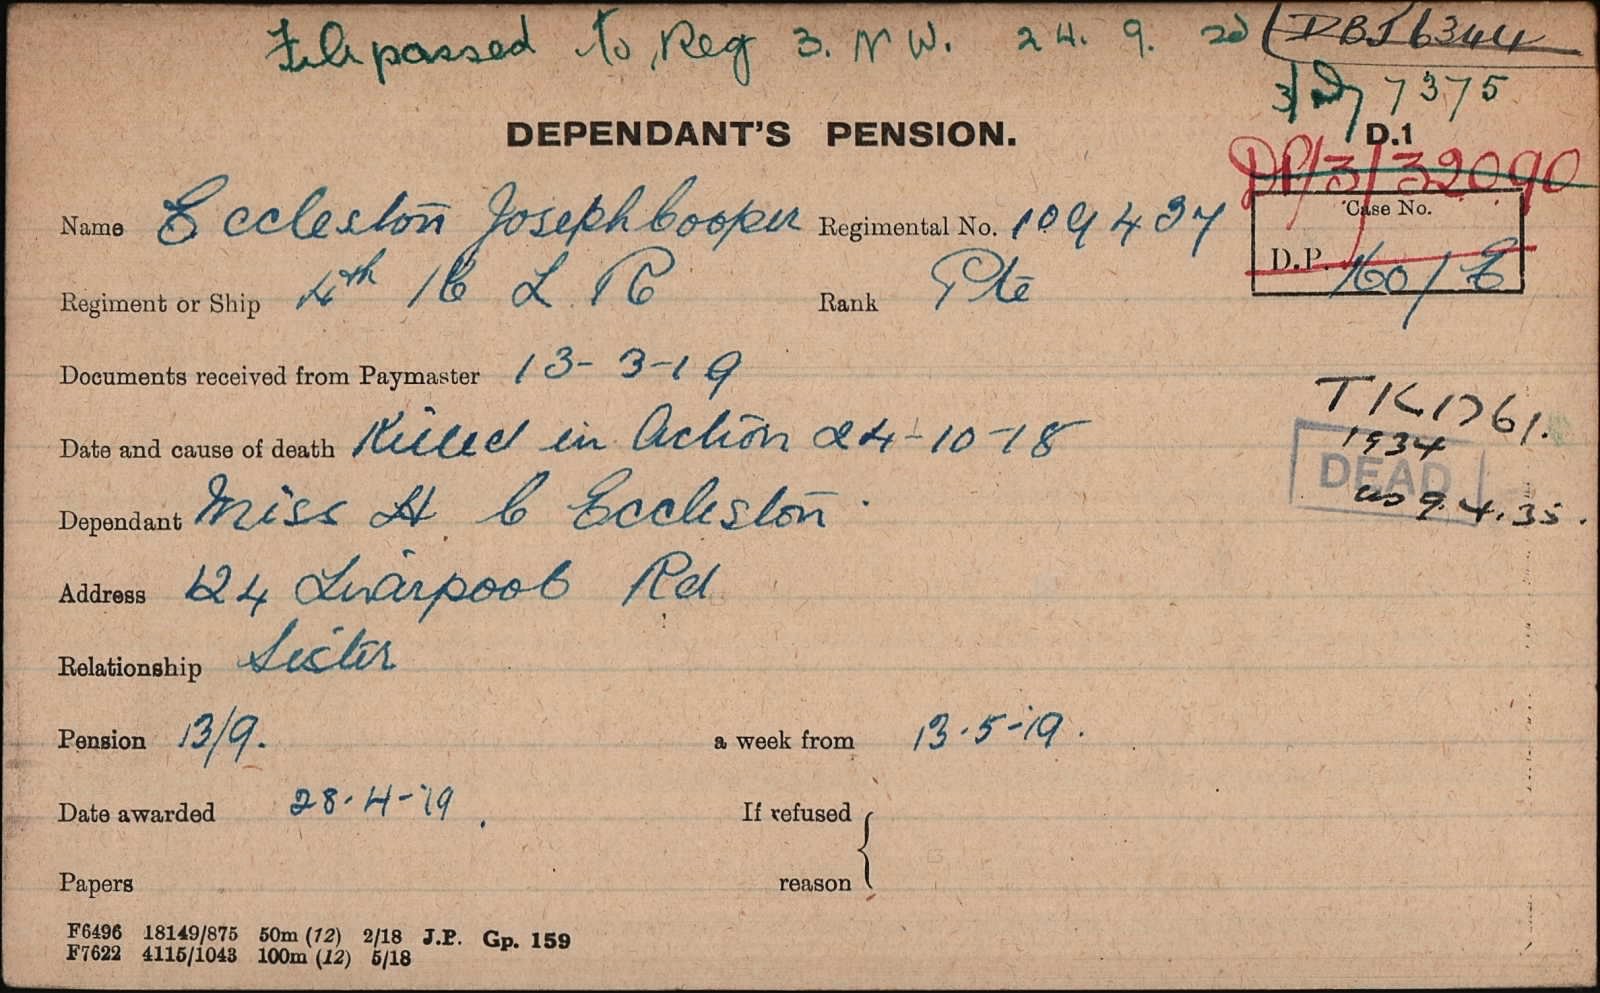 File passed to Reg 3. N W. 24. 9. 20
DBJ 6344
7375
DEPENDANT'S PENSION.
D.1
DP/3/32090
Name Eccleston Joseph Cooper Regimental No. 109437
Case No.
D.P. 160/E
Regiment or Ship 4th K L R Rank Pte
Documents received from Paymaster 13-3-19
TK1761.
Date and cause of death Killed in Action 24-10-18
1934
DEAD
9.4.35.
Dependant Miss H C Eccleston
Address 124 Liverpool Rd
Relationship Sister
Pension 13/9. a week from 13.5-19.
Date awarded 28.4-19. If refused
Papers reason
F6496 18149/875 50m (12) 2/18 J.P. Gp. 159
F7622 4115/1043 100m (12) 5/18